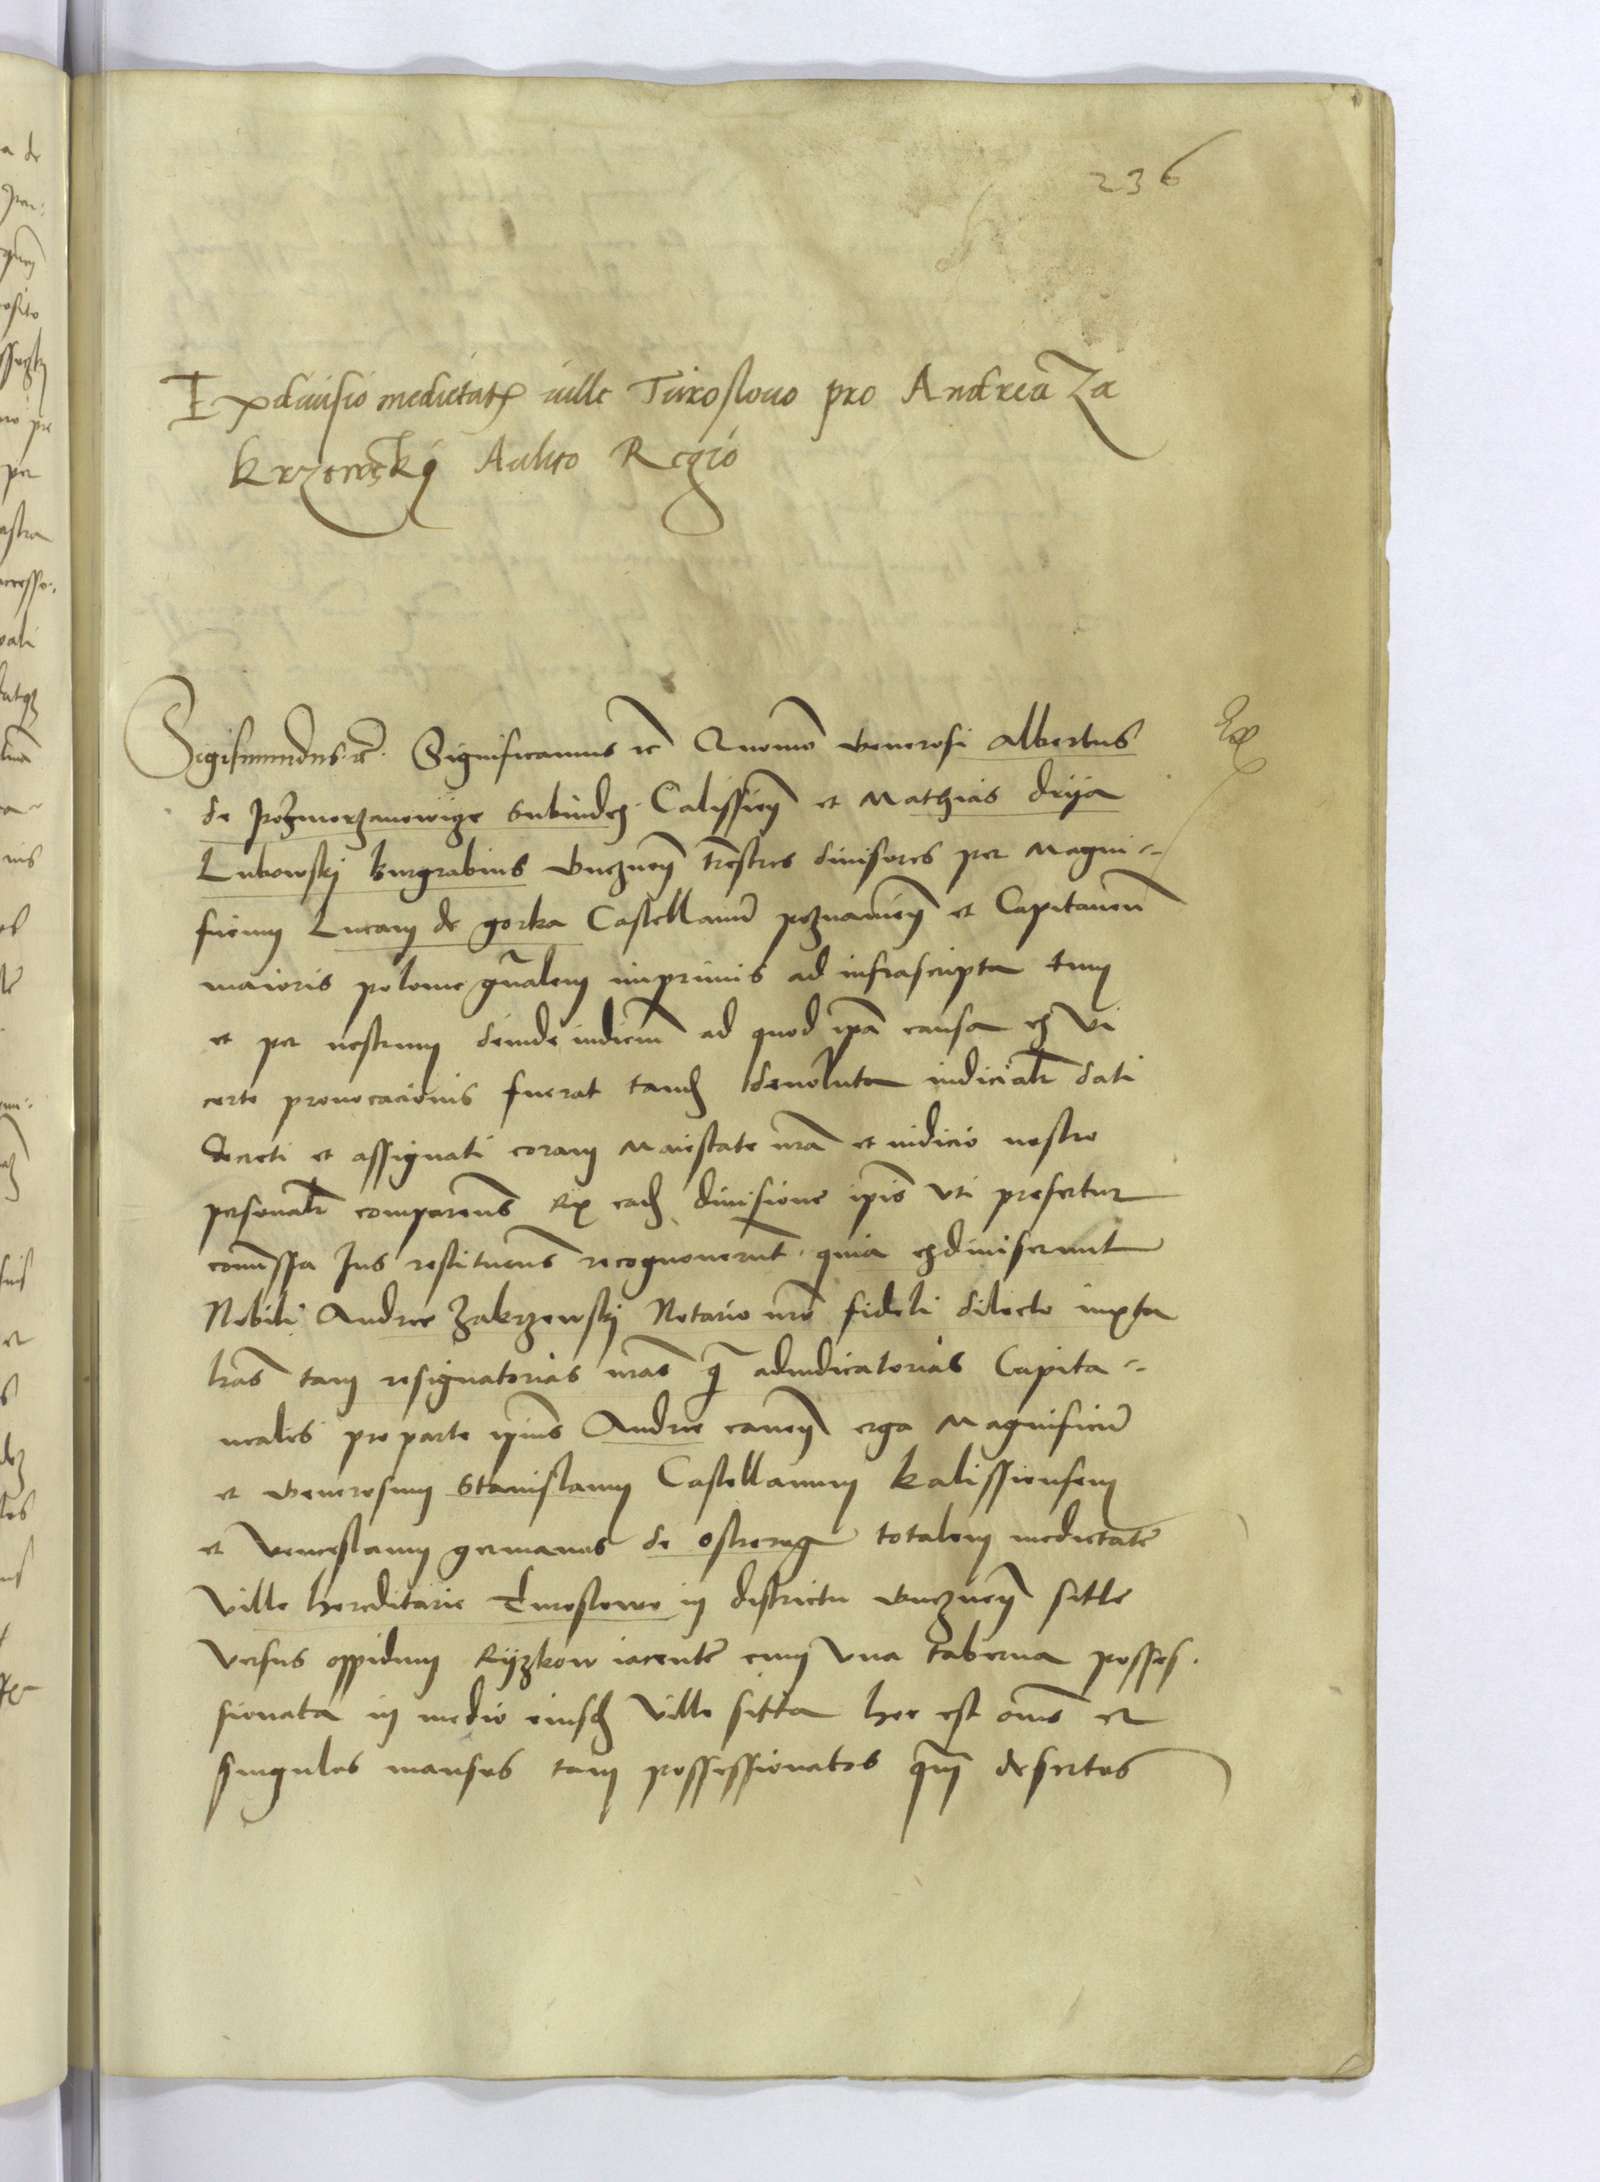 236
Exdiuisio medietatis ville Turoslouo pro Andrea Za
krzewsky Aulico Regio
Sigismundus etc. Significamus etc Quomodo Generosi Albertus
de Subiudex Calissien et Mathias drija
Lubowskj burgrabius Gneznen trestres diuisores per Magni=
ficum Lucam de gorka Castellanum poznanien et Capitaneum
maioris polonie gnalem imprimis ad infrascripta tum
et per nostrum deinde iudicium ad quod ipa causa ex vi
certe prouocacionis fuerat tandem deuoluta iudicialr dati
decreti et assignati coram Maiestate nra et iudicio nostro
personalr comparens Ex eadem diuisione ipis vti prefertur
comissa Jus restituens recognouerunt quia exdiuiserunt
Nobili Andree Zakrzewskj Notario nro fideli dilecto iuxta
lras tam resignatorias nras q adiudicatorias Capita=
neales pro parte ipius Andree erga Magnificum
et Generosum Stanislaum Castellanum kalissiensem
et Venceslaum germanos de ostrorog totalem medietatem
Ville hereditarie Turoslowo in districtu Gneznen
versus oppidum kijzkow iacentem cum vna taberna posses.
sionata in medio eiusdem Ville sitta hoc est omnes et
singulos mansos tam possessionatos quam desertos